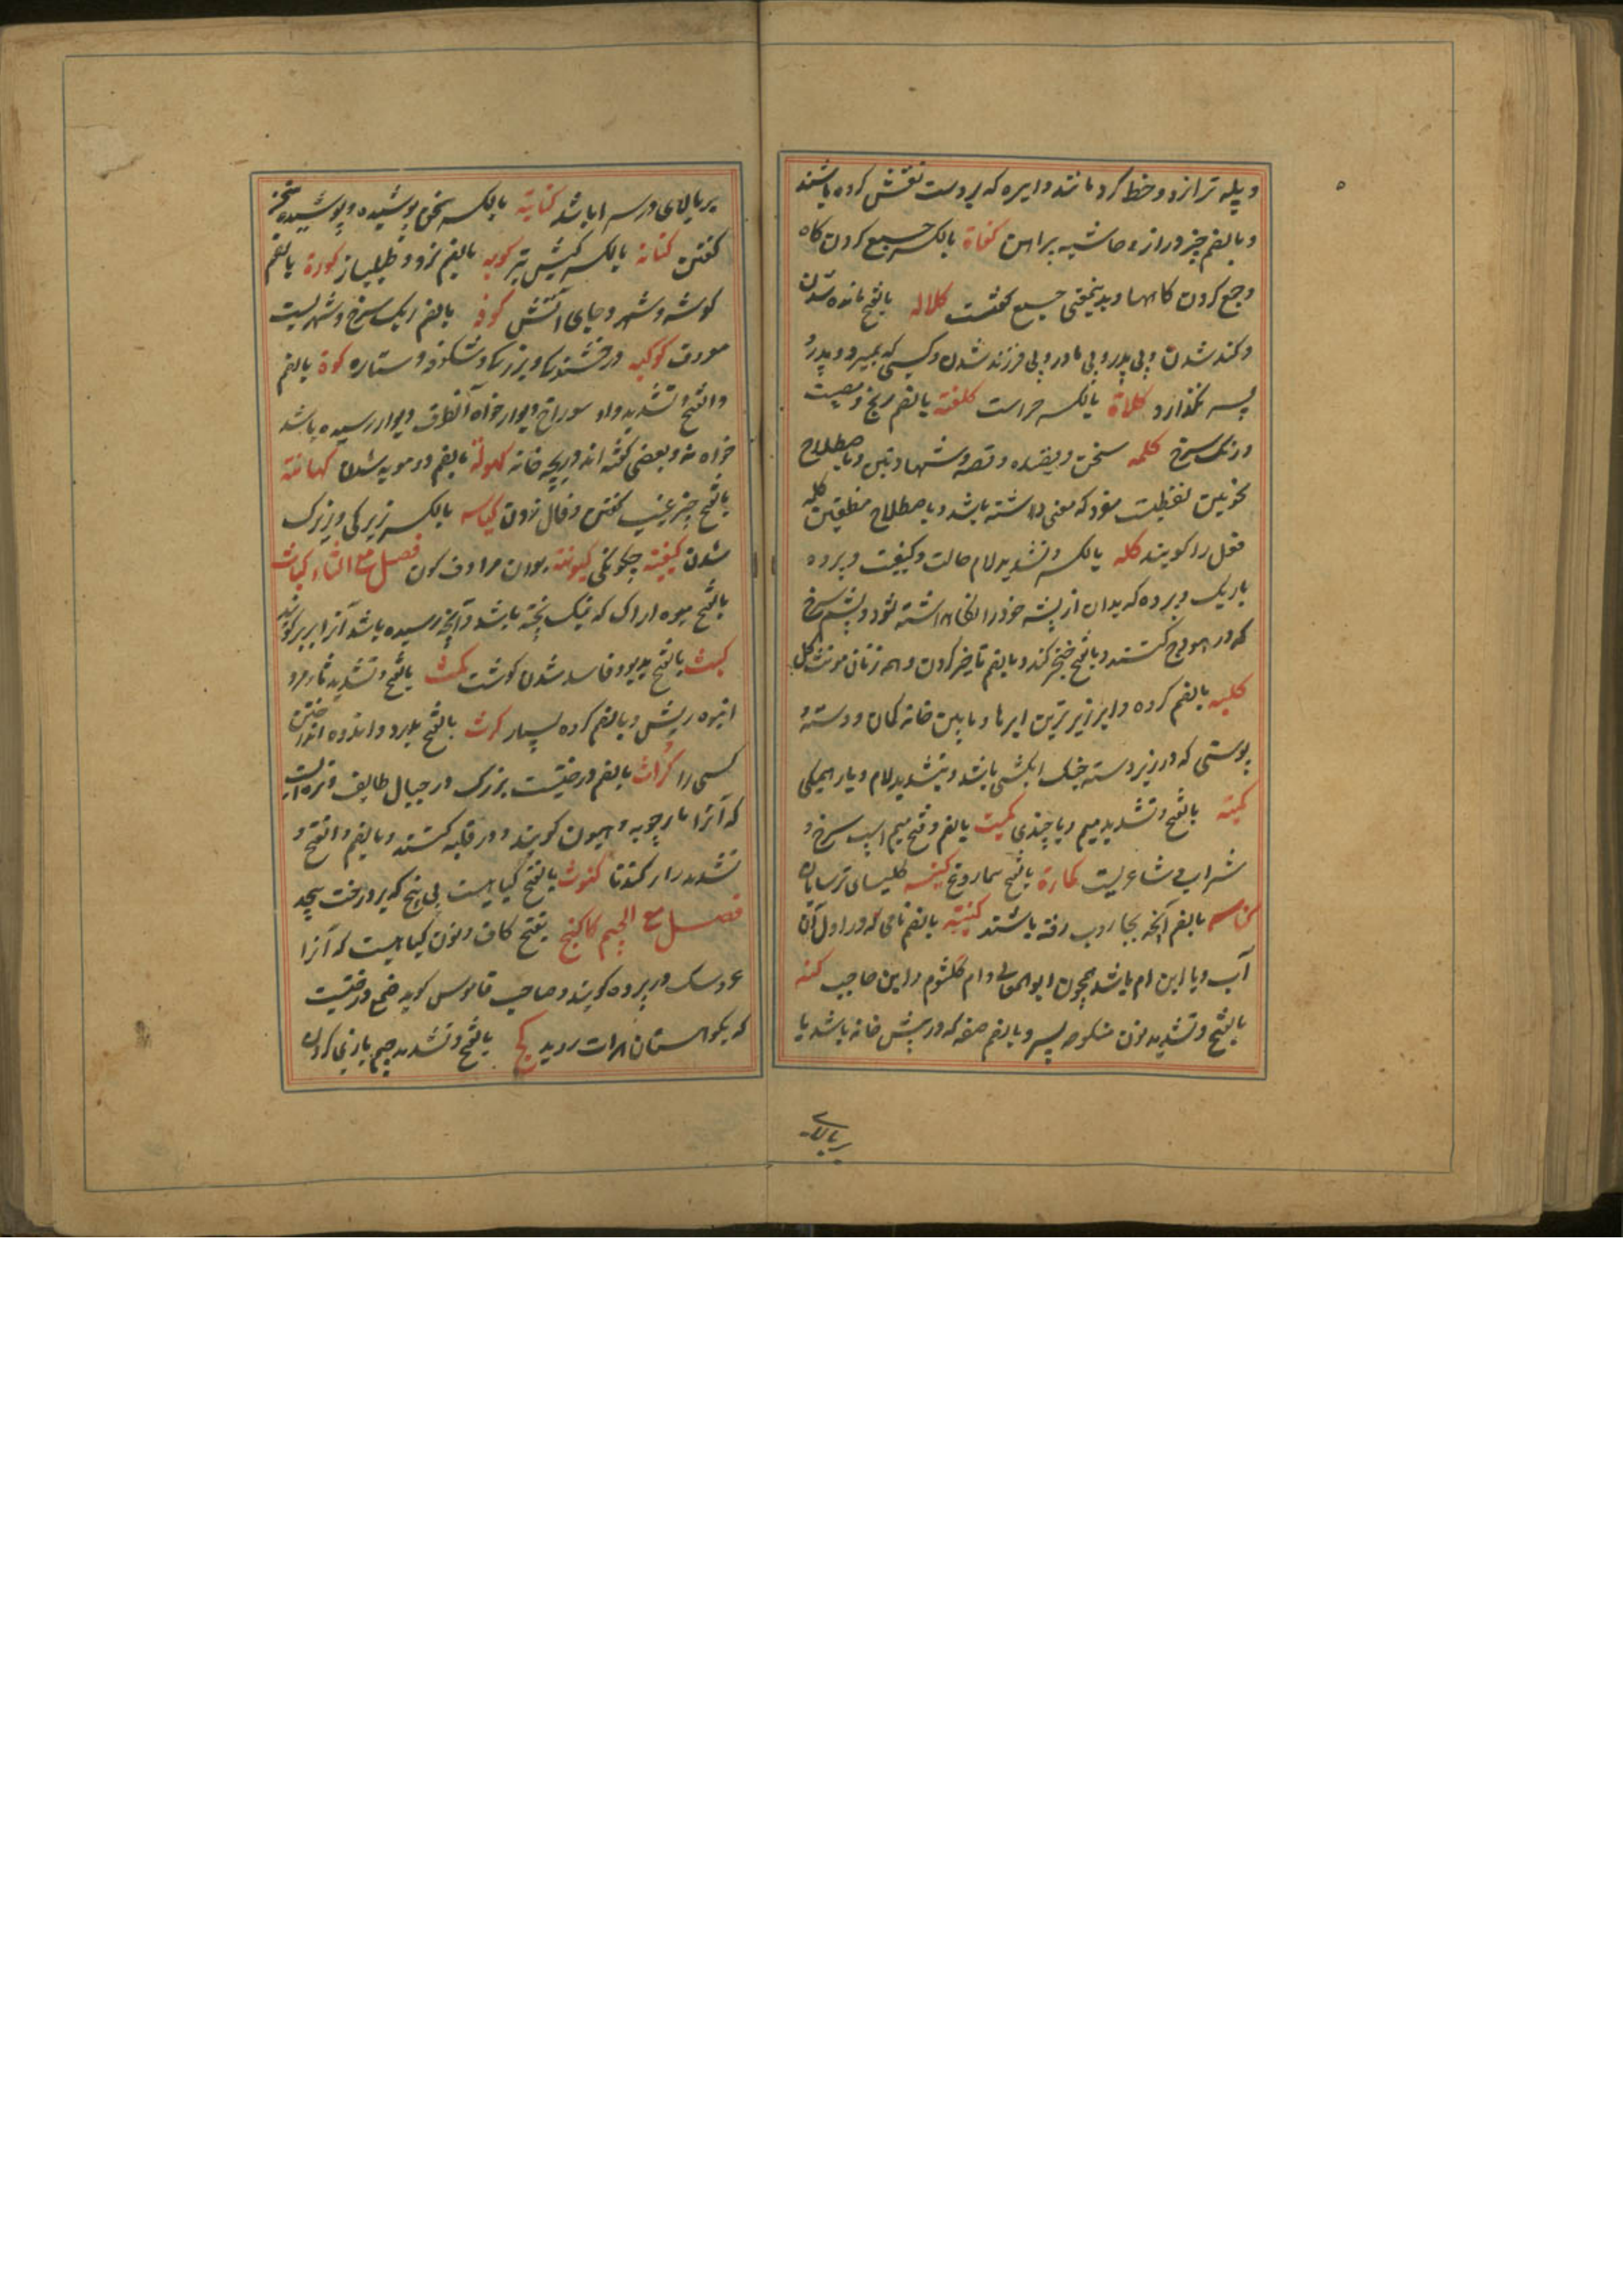 و پله ترازو و خط گرد مانند دایره که بر دست نقش کرده باشند
و بالضم چیز دراز و حاشیه پراهن کفاة بالکسر جمع کردن کاه
و جمع کردن کاهها و بدینمعنی جمع کفتست کلاله بالفتح مانده شدن
و کند شدن و بی پدر و بی مادر و بی فرزند شدن و کسی که بمیرد و پدر و
پسر نگذارد کلاة بالکسر حراست کلفته بالضم رنج و مصیبت
و رنگ سرخ کلمه سخن و قصیده و قصه و شهادتین و باصطلاح
نحویین لفظیست مفرد که معنی داشته باشد و باصطلاح منطقیین کلمه
فعل را گویند کله بالکسر و تشدید لام حالت و کیفیت و پرده
باریک و پرده که بدان از پشه خود را نگاه داشته شود و پشم سرخ
که در هودج کنند و بالفتح خنجر کند و بالضم تاخیر کردن و همه زنان مونث کل
کلیه بالضم گرده و ابر زیرترین ابرها و مابین خانه کمان و دسته و
پوستی که در زیر دسته خیک آبکشی باشد و بتشدید لام و یا همگی
کمیته بالفتح و تشدید میم و یا چندی کمیت بالضم و فتح میم اسپ سرخ و
شراب و شاعریست کماة بالفتح سماروغ کنیسه کلیسای ترسایان
کناسه بالضم آنچه بجاروب رفته باشند کنیته بالضم نامی که در اول آن
آب و یا ابن ام باشد همچون ابوالمعالی و ام کلثوم و ابن حاجب کنه
بالفتح و تشدید نون منکوحه پسر و بالضم صفه که در پیش خانه باشد یا
بربالای
بر بالای در سرا باشد کنایة بالکسر سخن پوشیده و پوشیده سخن
گفتن کنانه بالکسر کیش تیر کوبه بالضم نرد و طبلباز کورة بالضم
گوشه و شهر و جای آتش کوفه بالضم ریک سرخ و شهریست
معروف کوکبه درخشندگی و بزرگی و شکوفه و ستاره کوة بالضم
و الفتح و تشدید واو سوراخ دیوار خواه آنطرف دیوار رسیده باشد
خواه نه و بعضی گفته اند دریچه خانه کهولة بالضم دو مویه شدن کهانته
بالفتح چیز غیب گفتن و فال زدن کیاسه بالکسر زیرکی و زیرک
شدن کیفیته چگونگی کینونته بودن مرادف کون فصل مع الثاء کباث
بالفتح میوه اراک که نیک پخته باشد و آنچه رسیده باشد آنرا بریر گویند
کبث بالفتح بدبو و فاسد شدن گوشت کث بالفتح و تشدید ثا مرد
انبوه ریش و بالضم گروه بسیار کرث بالفتح بدرد و اندوه انداختن
کسی را کراث بالضم درختیست بزرگ در جبال طایف و تره ایست
که آنرا مارچوبه و هلیون گویند و در قلیه کنند و بالضم و الفتح و
تشدید را گندنا کشوث بالفتح گیاهیست بی بیخ که بر درخت پیچد
فصل مع الجیم کاکنج بفتح کاف و نون گیاهیست که آنرا
عروسک در پرده گویند و صاحب قاموس گوید صمغ درختیست
که بکوهستان هرات روید کج بالفتح و تشدید جیم بازی کردن